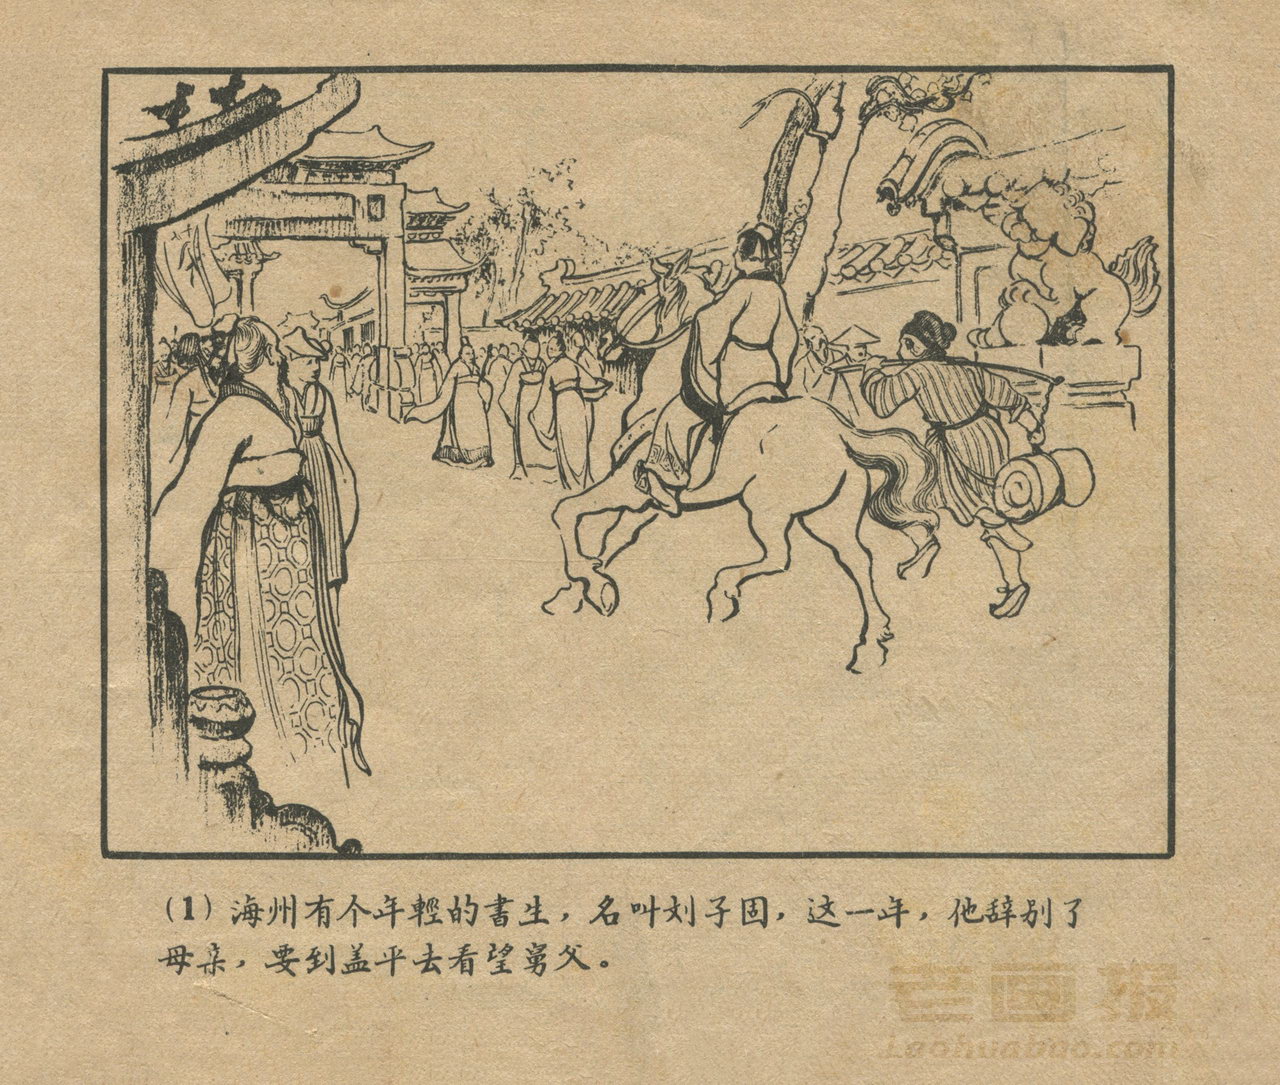 (1)海州有个年輕的書生，名叫刘子固，这一年，他辞别了
母亲，要到盖平去看望舅父。
老画报
Laohuabao.com